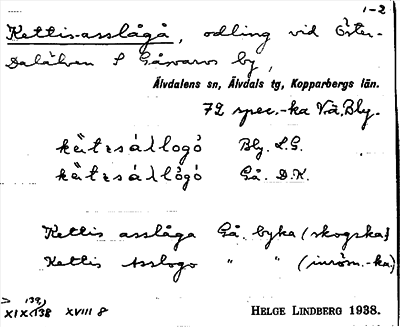 1-2
Kettis-asslågå, odling vid Öster-
Dalälven S Gåsvarv by,
Älvdalens sn, Älvdals tg, Kopparbergs län.
72 spec.-ka Va, Bly.
Bly. L.G.
Gå. D.K.
Kettis asslåga Gå. byka (skogska)
Kettis Asslogo " " (inröm.-ka)
XVIII 8 HELGE LINDBERG 1938.